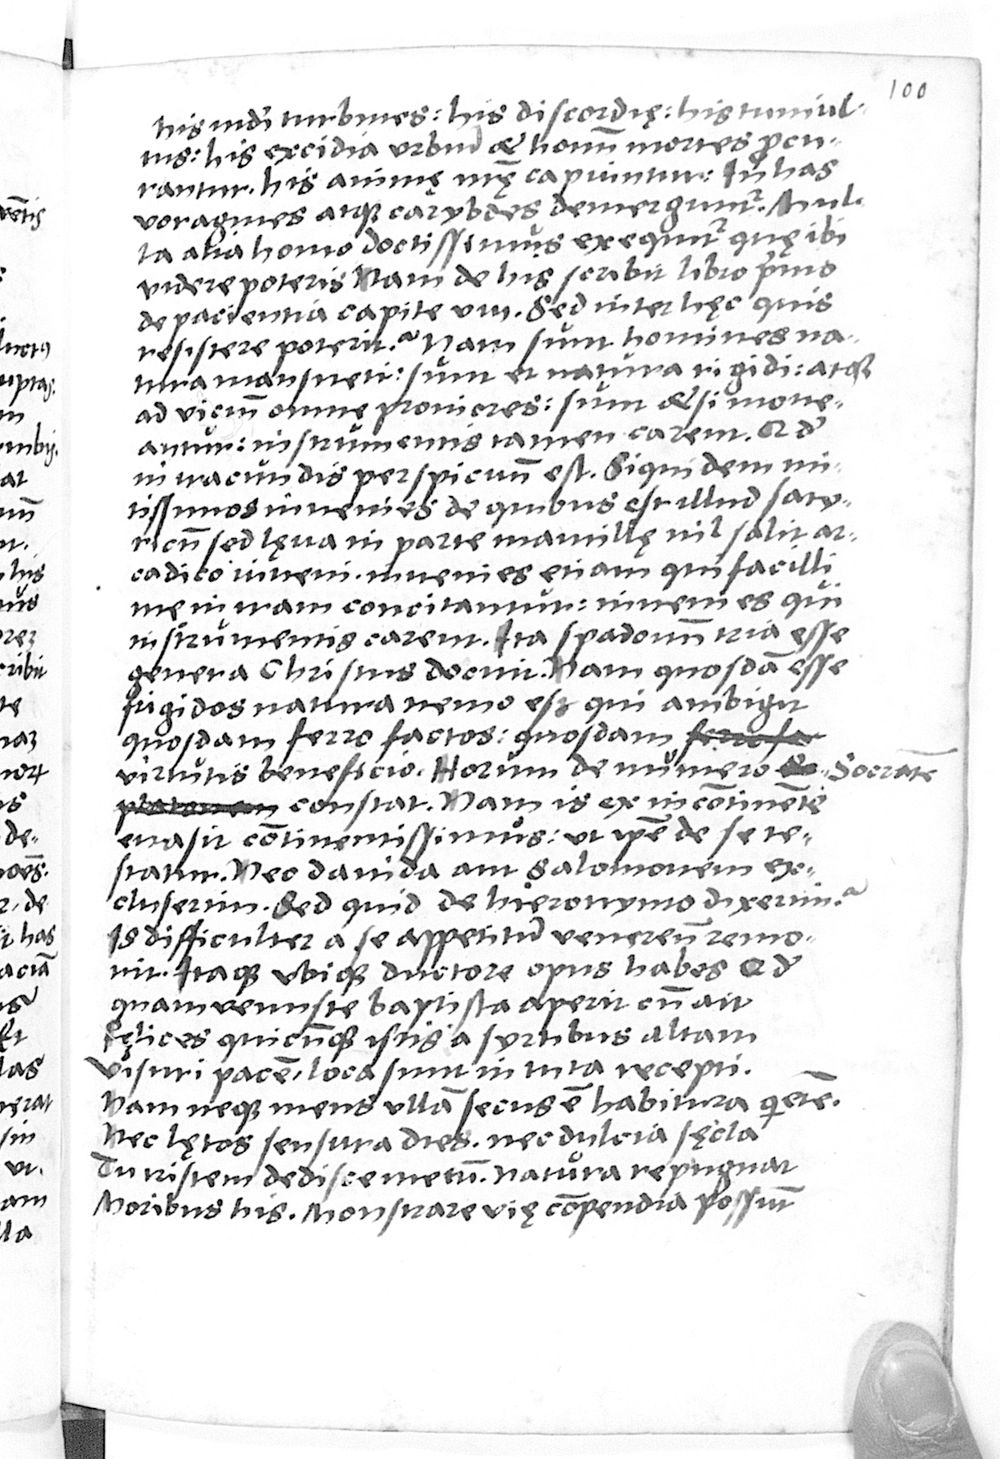 100
his mdi turbines: his discordię: his tumul-
tus: his excidia urbiū & hoīm mortes ꝓcu-
rantur. his animę nrę capiuntur: In has
voragines atqꝫ carybdes demerguntʳ. Mul-
ta alia homo doctissimus exequitʳ quę ibi
videre poteris Nam de his scribit libro p̄mo
de pacientia capite viii. Sed inter hęc quis
resistere poterit.? Nam sunt homines na-
tura mansueti: sunt et natura rigidi: atqꝫ
ad viciū omne proniores: sunt & si moue-
antur: instrumentis tamen carent. Qd̄
in iracundis perspicuū est. Siquidem mi-
tissimos inuenies de quibus est illud saty-
ricū sed lęua in parte mamillę nil salit ar-
cadico iuueni. inuenies etiam qui facilli
me in iram concitantur: inuenies qui
instrumentis carent. Ita spadonū tria esse
genera Christus docuit. Nam quosdā esse
frigidos natura nemo est qui ambigit
quosdam ferro factos: quosdam ferro fa
virtutis beneficio. Horum de numero Socratē
platonem constat. Nam is ex incōtinētē
euasit cōtinentissimus: ut ip̄e de se te-
statur. Nec dauida aut Salomonem ex-
cluserim. Sed quid de hieronymo dixerim.?
Is difficulter a se appetitū venereū remo-
uit. Itaqꝫ ubiqꝫ ductore opus habes Qd̄
quam venuste baptista aperit cū ait
Fęlices quicūqꝫ istis a syrtibus altam
Visuri pacē, loca sunt in tuta recepti.
Nam neqꝫ mens ullā secus ē habitura qietē.
Nec lętos sensura dies. nec dulcia sęcla
Tu tristem dedisce metū. Natura repugnat
Moribus his. Monstrare vię cōpendia possūt